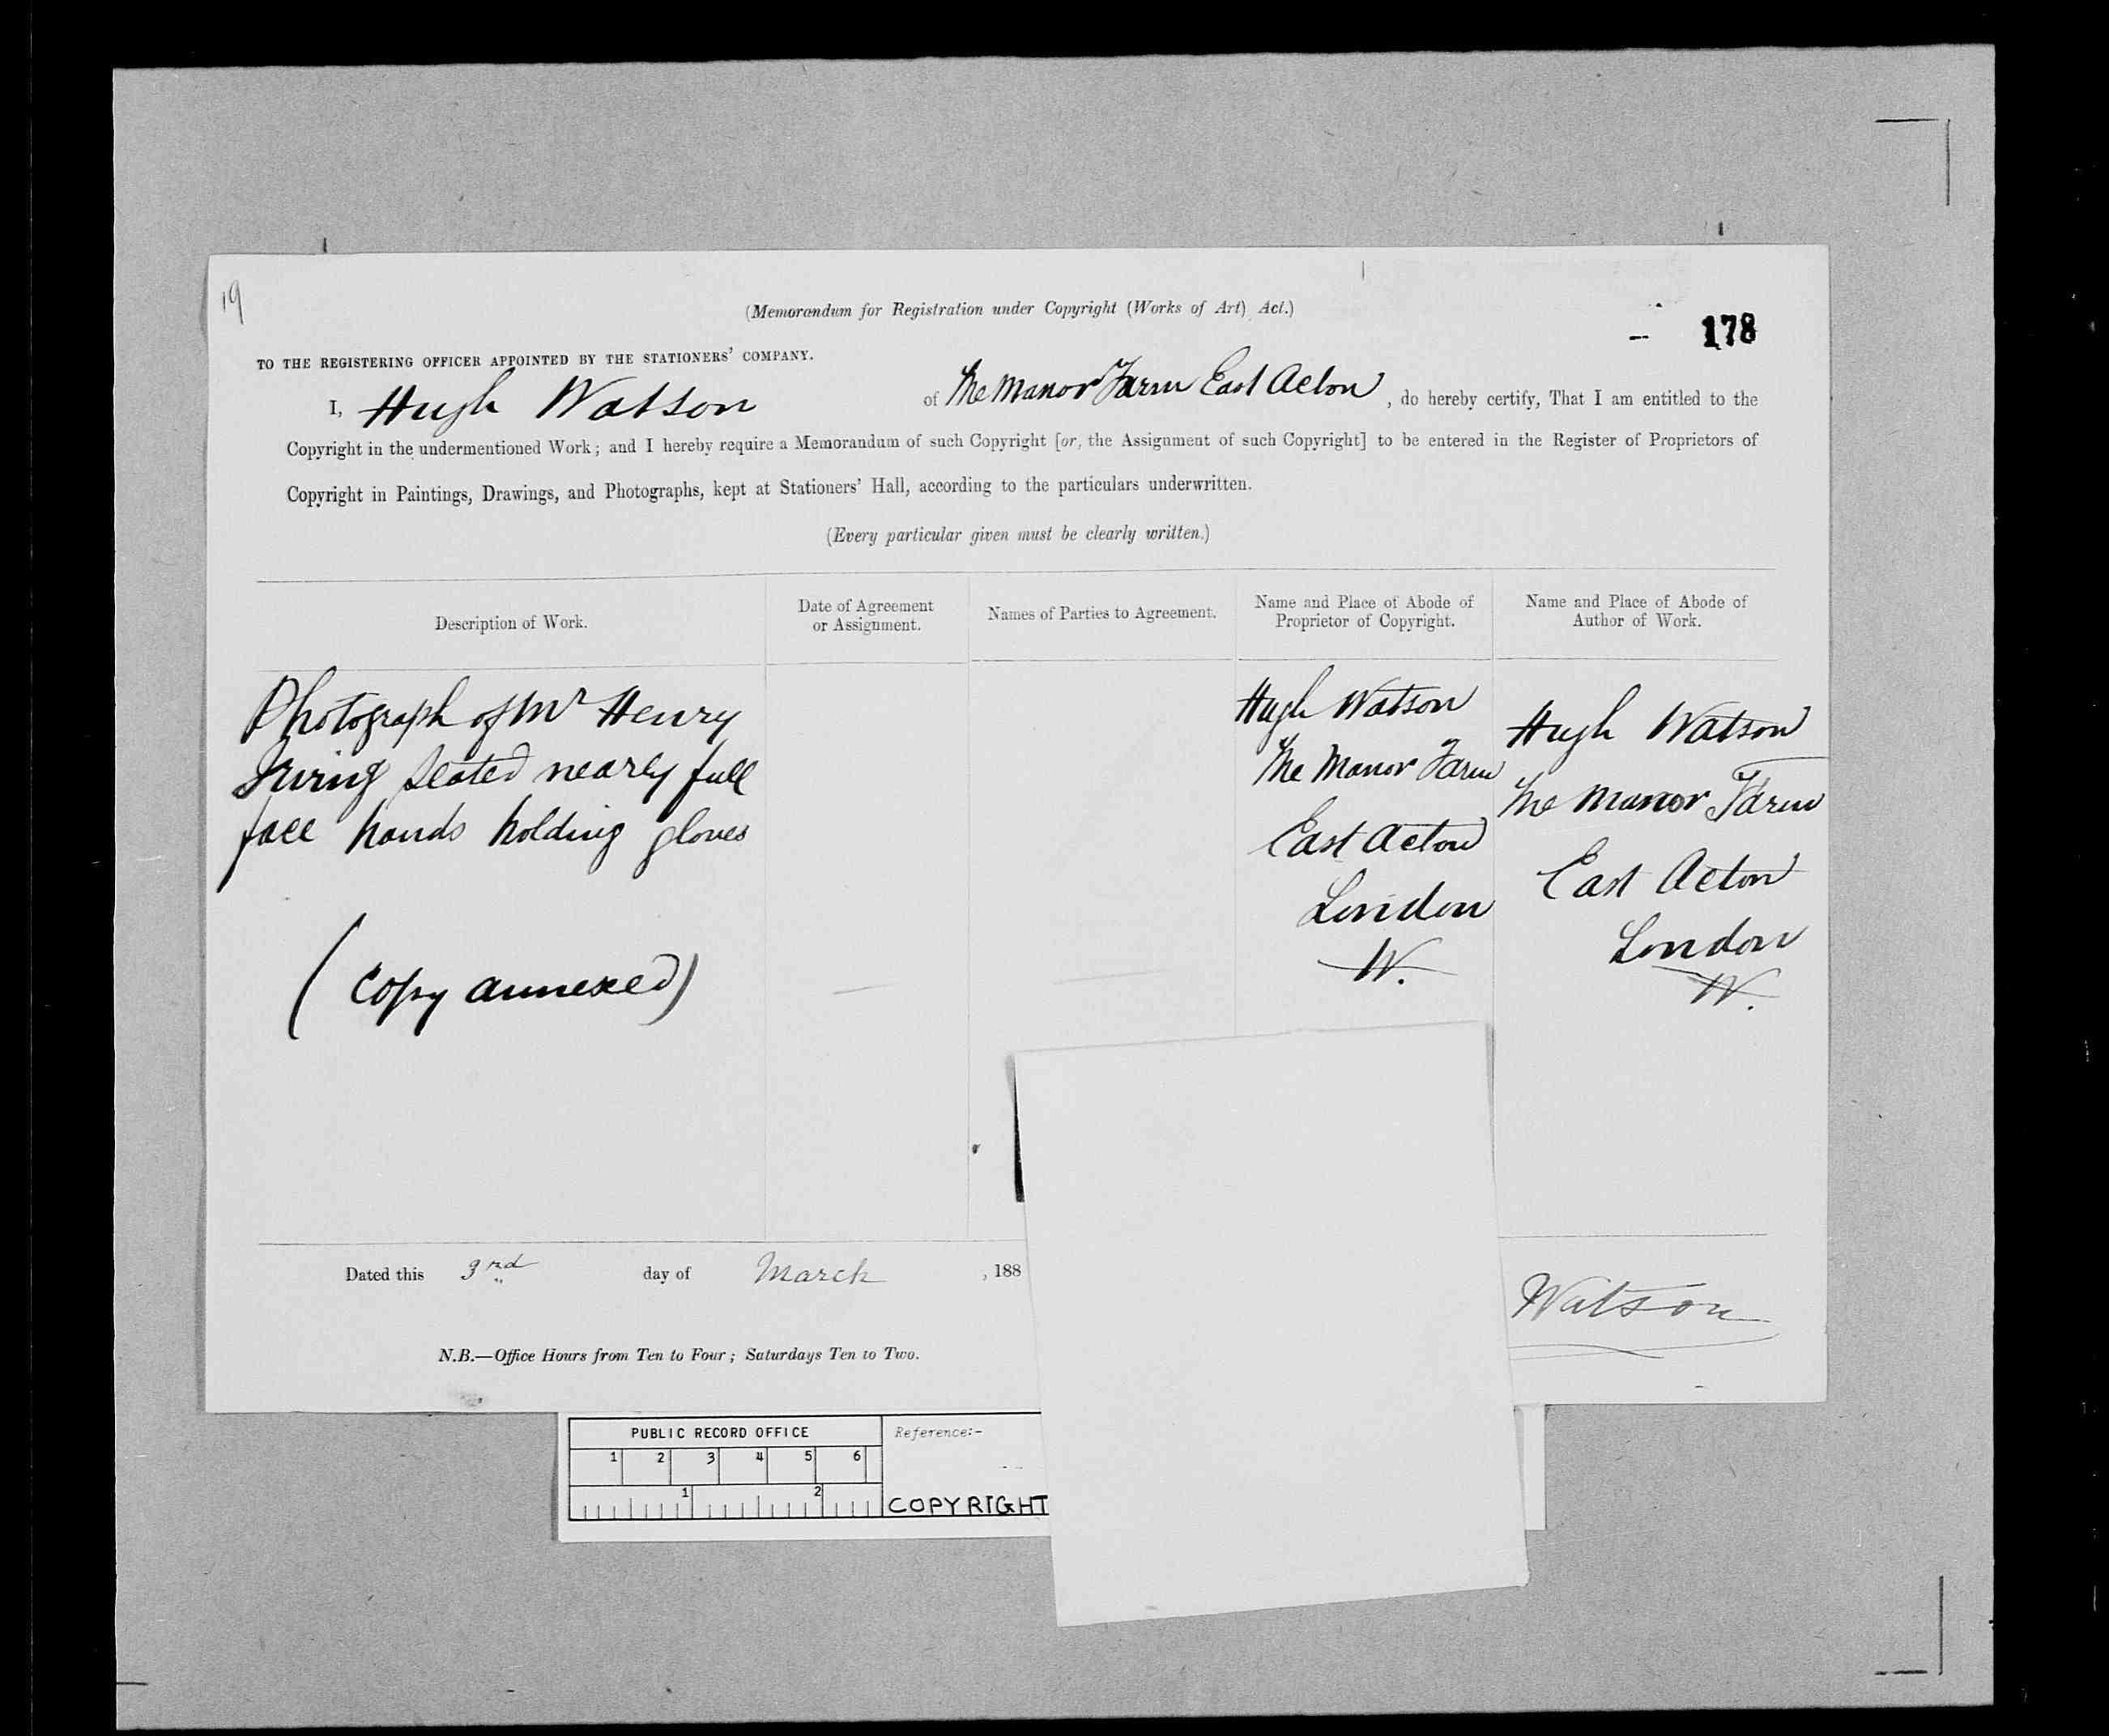 19
(Memorandum for Registration under Copyright (Works of Art) Act.)
178
TO THE REGISTERING OFFICER APPOINTED BY THE STATIONERS' COMPANY.
I, Hugh Watson of The Manor Farm East Acton, do hereby certify, That I am entitled to the
Copyright in the undermentioned Work; and I hereby require a Memorandum of such Copyright [or, the Assignment of such Copyright] to be entered in the Register of Proprietors of
Copyright in Paintings, Drawings, and Photographs, kept at Stationers' Hall, according to the particulars underwritten.
(Every particular given must be clearly written.)
Description of Work.
Date of Agreement
or Assignment.
Names of Parties to Agreement.
Name and Place of Abode of
Proprietor of Copyright.
Name and Place of Abode of
Author of Work.
Photograph of Mr Henry
Irving seated nearly full
face hands holding gloves
(Copy annexed)
Hugh Watson
The Manor Farm
East Acton
London
W.
Hugh Watson
The Manor Farm
East Acton
London
W.
Dated this 3rd day of March , 188
Watson
N.B.—Office Hours from Ten to Four; Saturdays Ten to Two.
PUBLIC RECORD OFFICE
1 2 3 4 5 6
1 2
Reference:-
COPYRIGHT